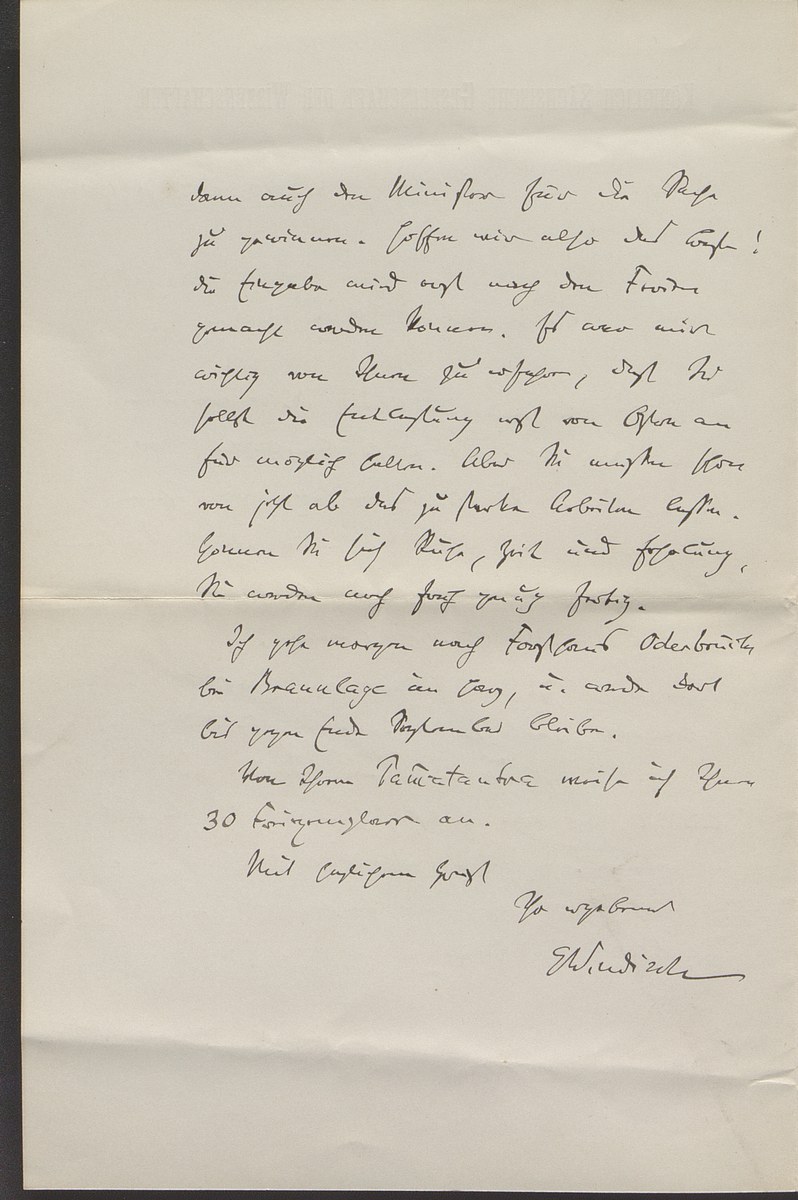 dann auch den Minister für die Sache
zu gewinnen. Hoffen wir also das Beste!
die Eingabe wird erst nach den Ferien
gemacht werden können. Es war mir
wichtig von Ihnen zu erfahren, dass Sie
selbst die Entlastung erst von Ostern an
für möglich halten. Aber Sie müssen schon
von jetzt ab das zu starke Arbeiten lassen.
Gönnen Sie sich Ruhe, Zeit und Erholung,
Sie werden noch früh genug fertig.
Ich gehe morgen nach Forsthaus Oderbrück
bei Braunlage im Harz, u. werde dort
bis gegen Ende September bleiben.
Von Ihrem Pañcatantra weise ich Ihnen
30 Freiexemplare an.
Mit herzlichem Gruß
Ihr ergebenster
EWindisch